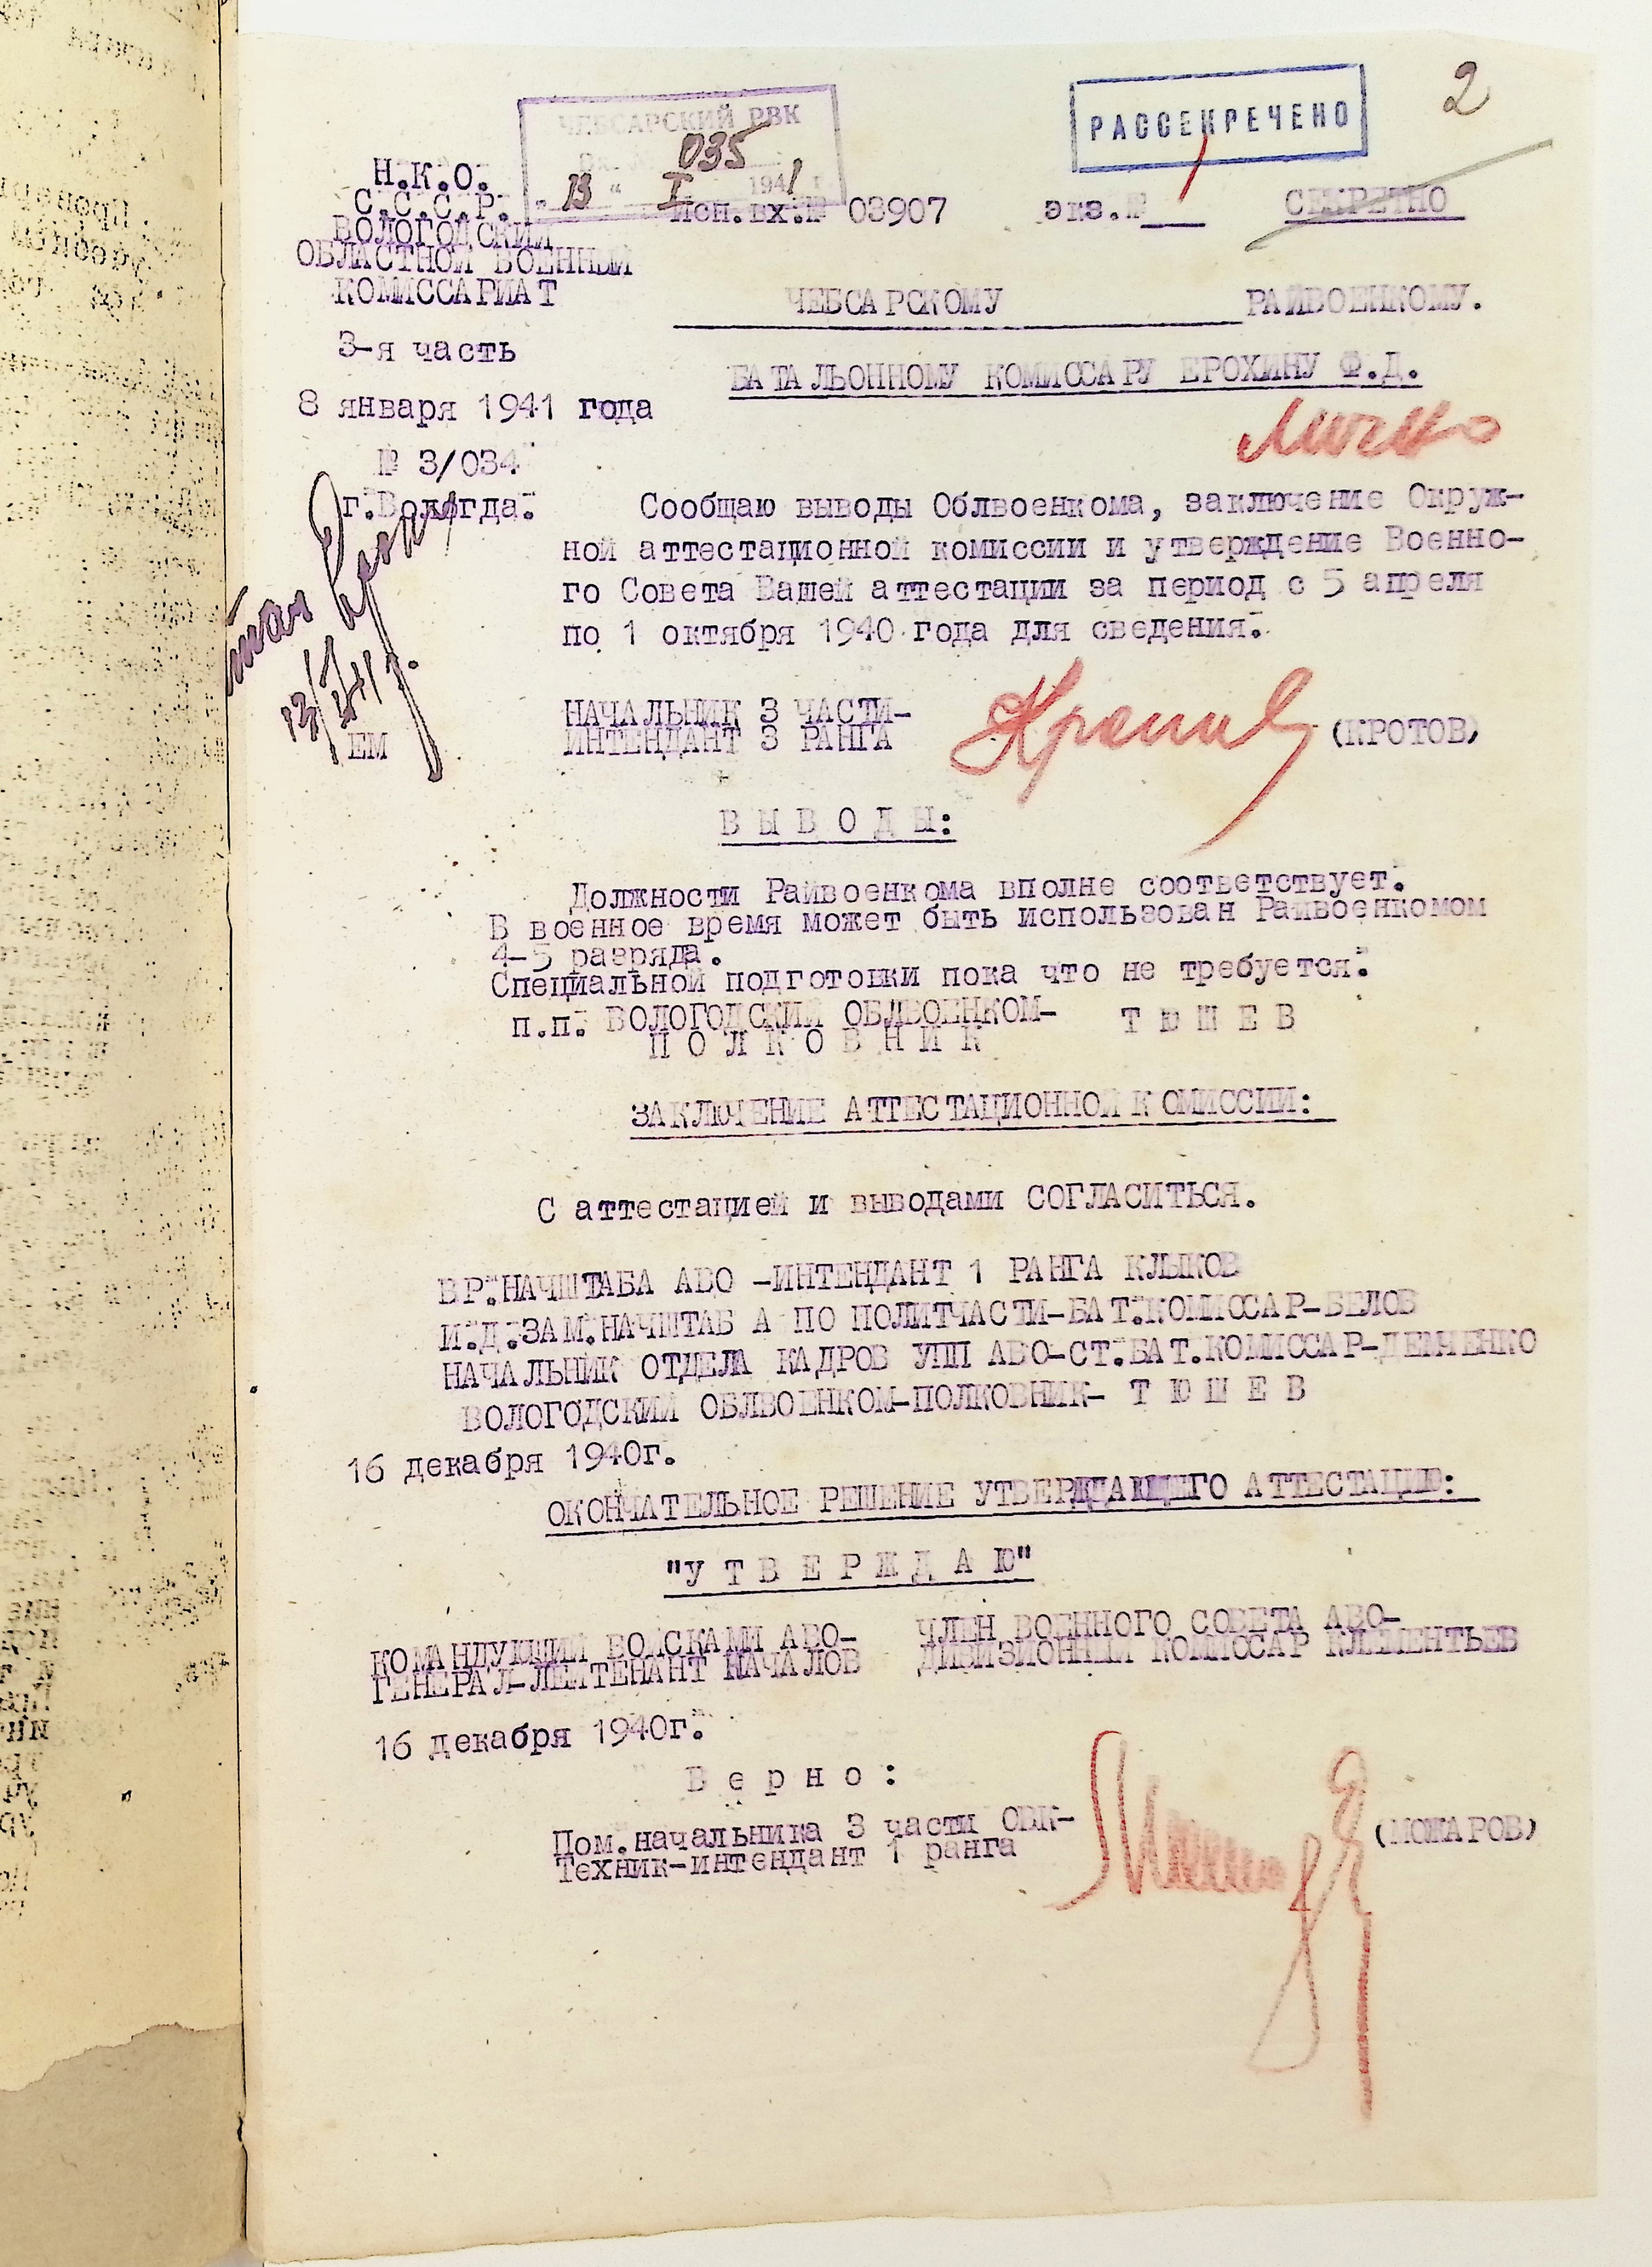 2
РАССЕКРЕЧЕНО
ЧЕБСАРСКИЙ РВК
035
"13" I 1941 г
Н.К.О.
С.С.С.Р.
ВОЛОГОДСКИЙ
ОБЛАСТНОЙ ВОЕННЫЙ
КОМИССАРИАТ
3-я часть
8 января 1941 года
№ 3/034
г.Вологда.
Исп.вх.№ 03907 экз.№ 1 СЕКРЕТНО
ЧЕБСАРСКОМУ РАЙВОЕНКОМУ.
БАТАЛЬОННОМУ КОМИССАРУ ЕРОХИНУ Ф.Д.
Лично
Сообщаю выводы Облвоенкома, заключение Окруж-
ной аттестационной комиссии и утверждение Военно-
го Совета Вашей аттестации за период с 5 апреля
по 1 октября 1940 года для сведения.
13/I 41 г.
ЕМ
НАЧАЛЬНИК 3 ЧАСТИ-
ИНТЕНДАНТ 3 РАНГА (КРОТОВ)
В Ы В О Д Ы:
Должности Райвоенкома вполне соответствует.
В военное время может быть использован Райвоенкомом
4-5 разряда.
Специальной подготовки пока что не требуется.
п.п. ВОЛОГОДСКИЙ ОБЛВОЕНКОМ- Т Ю Ш Е В
П О Л К О В Н И К
ЗАКЛЮЧЕНИЕ АТТЕСТАЦИОННОЙ КОМИССИИ:
С аттестацией и выводами СОГЛАСИТЬСЯ.
ВР.НАЧШТАБА АВО -ИНТЕНДАНТ 1 РАНГА КЛЫКОВ
И.Д.ЗАМ.НАЧШТАБ А ПО ПОЛИТЧАСТИ-БАТ.КОМИССАР-БЕЛОВ
НАЧАЛЬНИК ОТДЕЛА КАДРОВ УПП АВО-СТ.БАТ.КОМИССАР-ДЕМЧЕНКО
ВОЛОГОДСКИЙ ОБЛВОЕНКОМ-ПОЛКОВНИК- Т Ю Ш Е В
16 декабря 1940г.
ОКОНЧАТЕЛЬНОЕ РЕШЕНИЕ УТВЕРЖДАЮЩЕГО АТТЕСТАЦИЮ:
"У Т В Е Р Ж Д А Ю"
КОМАНДУЮЩИЙ ВОЙСКАМИ АВО- ЧЛЕН ВОЕННОГО СОВЕТА АВО-
ГЕНЕРАЛ-ЛЕЙТЕНАНТ КАЧАЛОВ ДИВИЗИОННЫЙ КОМИССАР КЛЕМЕНТЬЕВ
16 декабря 1940г.
В е р н о :
Пом.начальника 3 части ОВК-
Техник-интендант 1 ранга (ПОЖАРОВ)